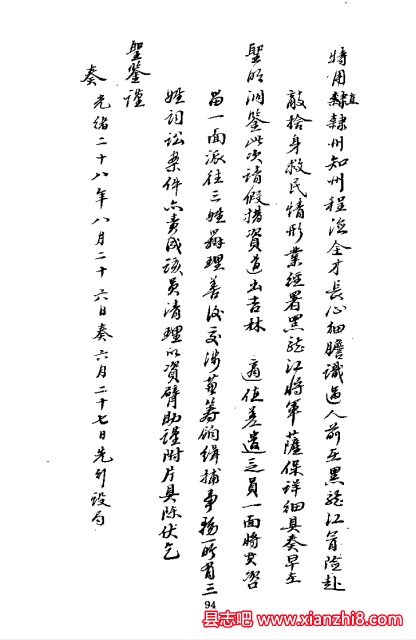 特用直隸隸州知州程德全才長心細膽識過人前在黑龍江省險赴
敵捨身救民情形業經署黑龍江將軍薩保詳細具奏早在
聖明洞鑒此次請假措資道出吉林 適值差遣乏員一面將其咨
留一面派往三姓辦理善後交涉並籌餉緝捕事務所有三
姓詞訟案件亦責成該員清理以資臂助謹附片具陳伏乞
聖鑒謹
奏 光緒二十八年八月二十六日奏六月二十七日先行設局
94
县志吧 www.xianzhi8.com